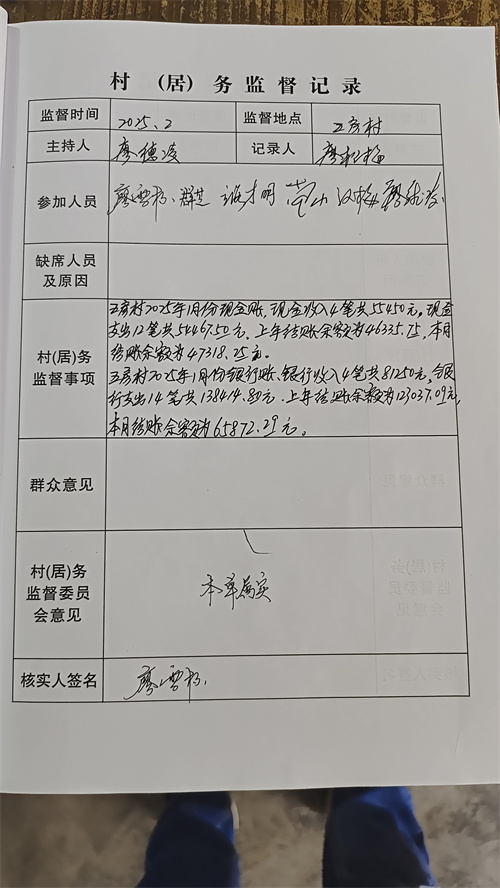 村 (居) 务 监 督 记 录
监督时间 2025.2 监督地点 五房村
主持人 廖德凌 记录人 廖
参加人员 廖雪 群芝 才明
缺席人员
及原因
村(居)务
监督事项
五房村2025年1月份现金账、现金收入4笔共55450元。现金
支出12笔共54467.50元,上年结账余额为46335.75,本月
结账余额为47318.25元。
五房村2025年1月份银行账、银行收入4笔共81250元,银
行支出14笔共138414.80元.上年结账余额为123037.09元,
本月结账余额为65872.29元。
群众意见
村(居)务
监督委员
会意见
本单属实
核实人签名 廖雪